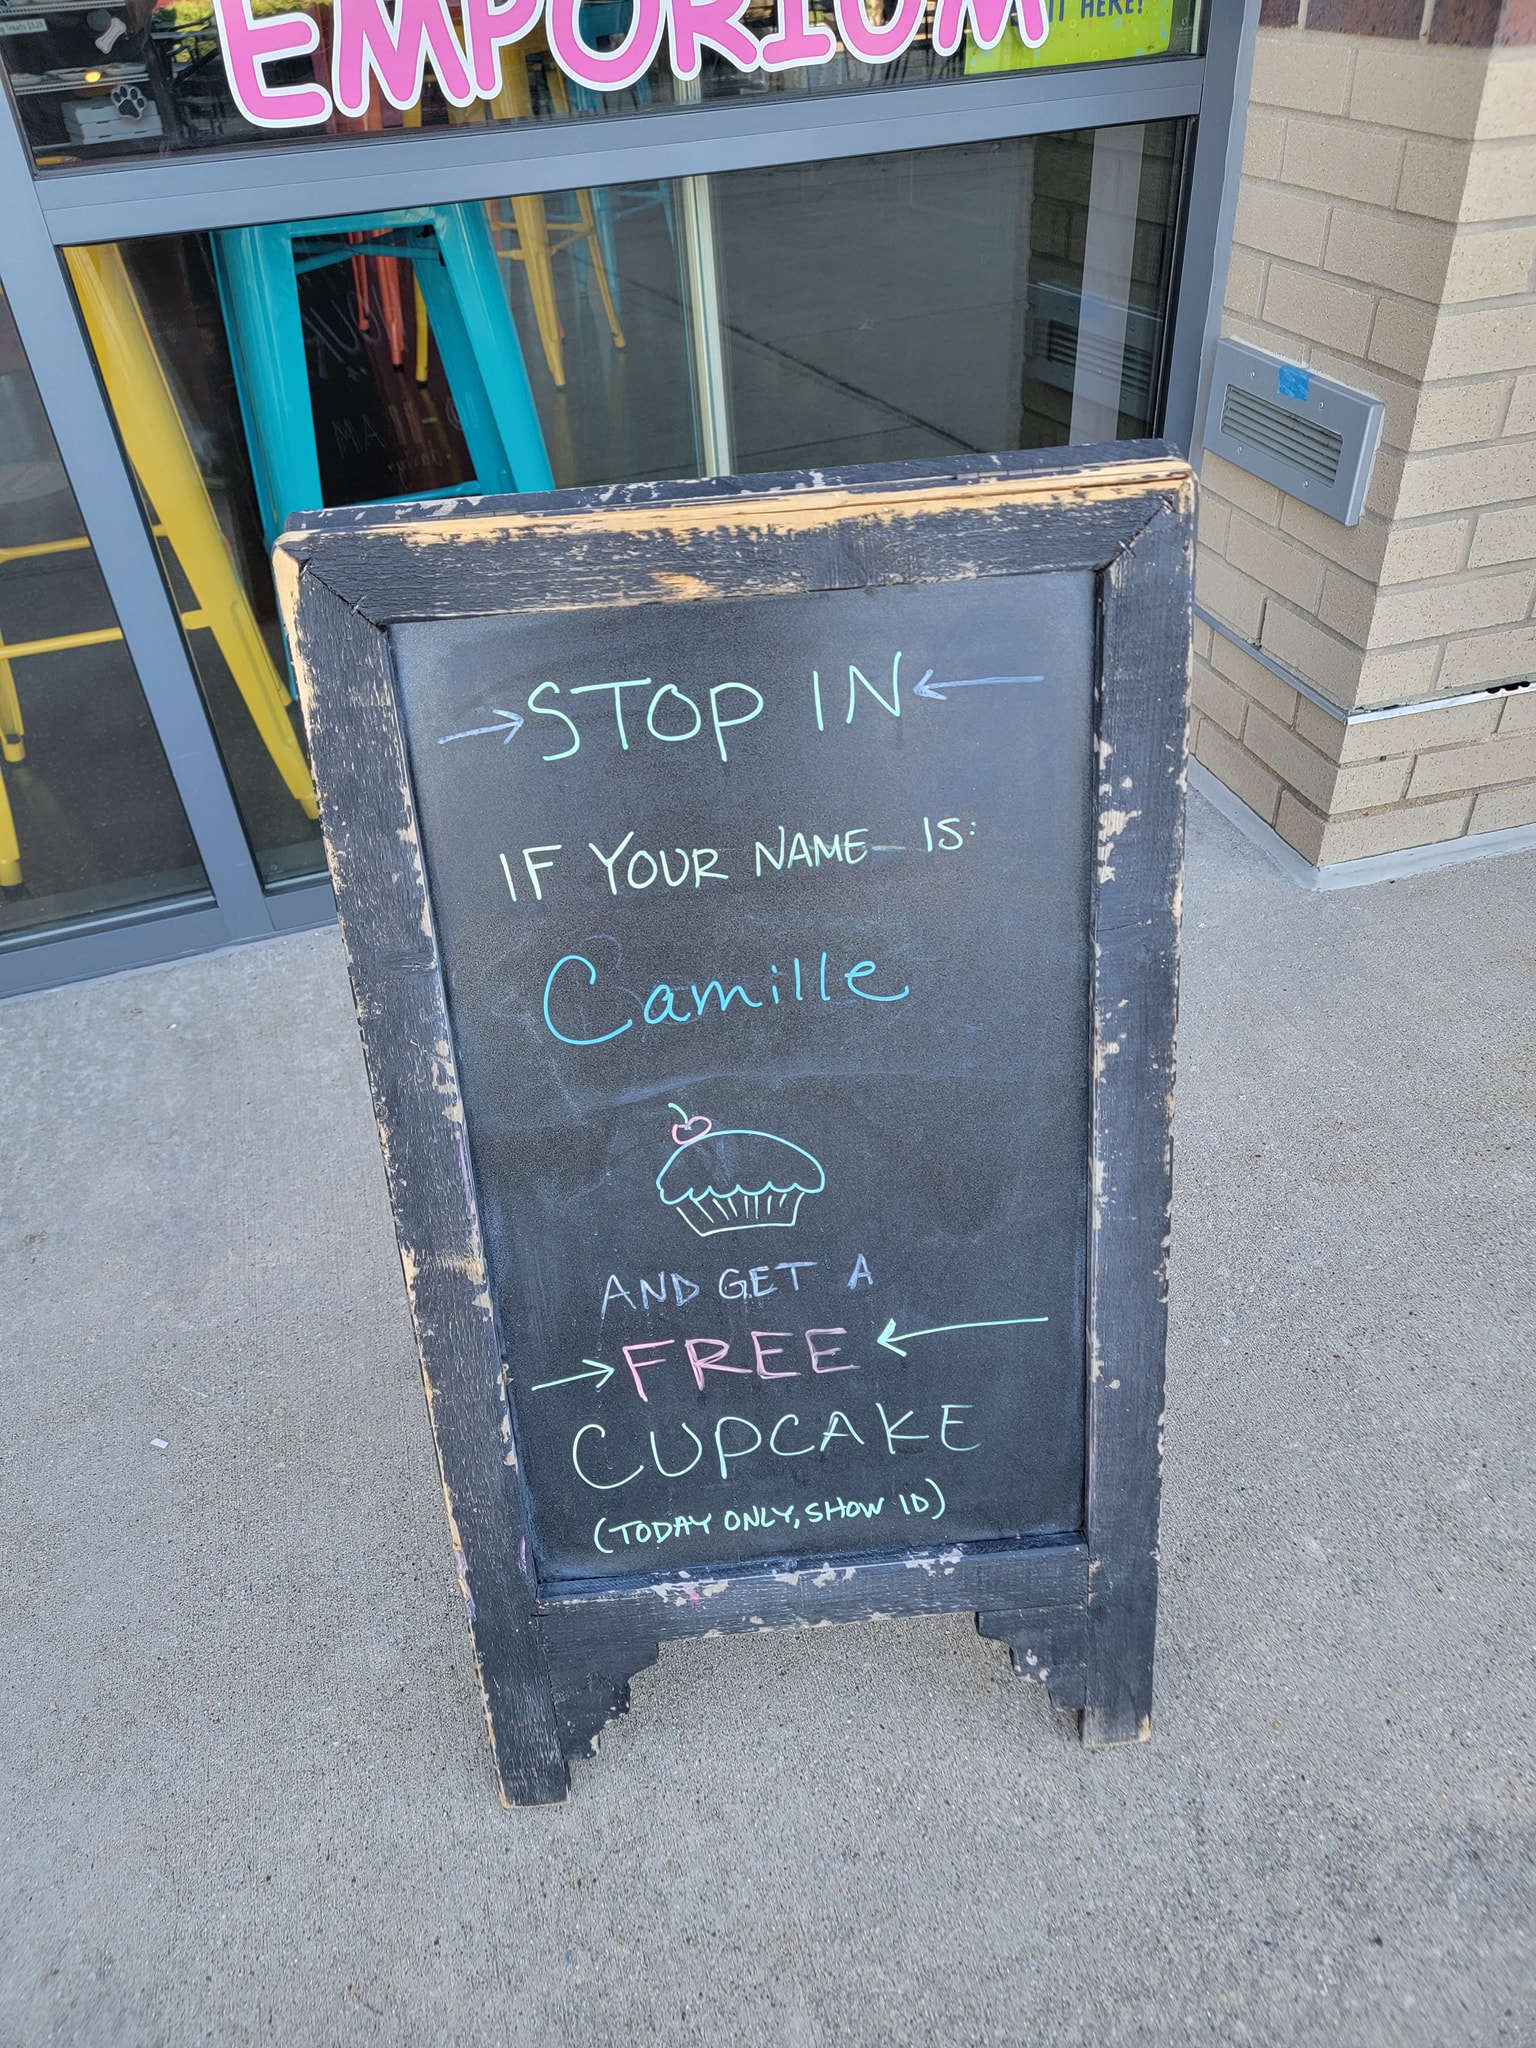 EMPORIUM
IT HERE!
STOP IN
IF YOUR NAME IS:
Camille
AND GET A
FREE
CUPCAKE
(TODAY ONLY, SHOW ID)